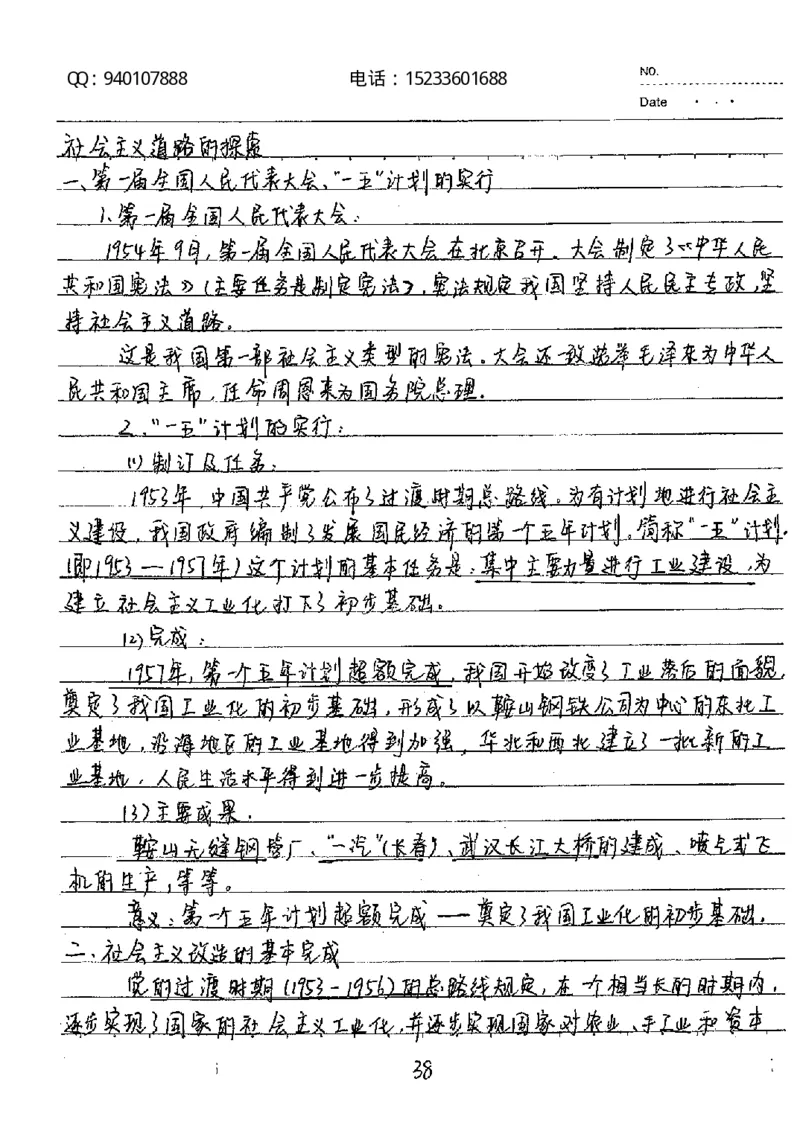 QQ：940107888 电话：15233601688 NO.
Date
社会主义道路的探索
一、第一届全国人民代表大会、"一五"计划的实行
1.第一届全国人民代表大会：
1954年9月,第一届全国人民代表大会在北京召开。大会制定了《中华人民
共和国宪法》(主要任务是制定宪法),宪法规定我国坚持人民民主专政,坚
持社会主义道路。
这是我国第一部社会主义类型的宪法。大会还一致选举毛泽东为中华人
民共和国主席,任命周恩来为国务院总理.
2."一五"计划的实行：
(1)制订及任务：
1953年,中国共产党公布了过渡时期总路线。为有计划地进行社会主
义建设,我国政府编制了发展国民经济的第一个五年计划,简称"一五"计划.
(即1953—1957年)这个计划的基本任务是：集中主要力量进行工业建设,为
建立社会主义工业化打下了初步基础。
(2)完成：
1957年,第一个五年计划超额完成,我国开始改变了工业落后的面貌,
奠定了我国工业化的初步基础,形成了以鞍山钢铁公司为中心的东北工
业基地,沿海地区的工业基地得到加强,华北和西北建立了一批新的工
业基地,人民生活水平得到进一步提高。
(3)主要成果.
鞍山无缝钢管厂、"一汽"(长春)、武汉长江大桥的建成、喷气式飞
机的生产,等等。
意义：第一个五年计划超额完成——奠定了我国工业化的初步基础.
二、社会主义改造的基本完成
党的过渡时期(1953-1956)的总路线规定,在一个相当长的时期内,
逐步实现了国家的社会主义工业化,并逐步实现国家对农业、手工业和资本
38